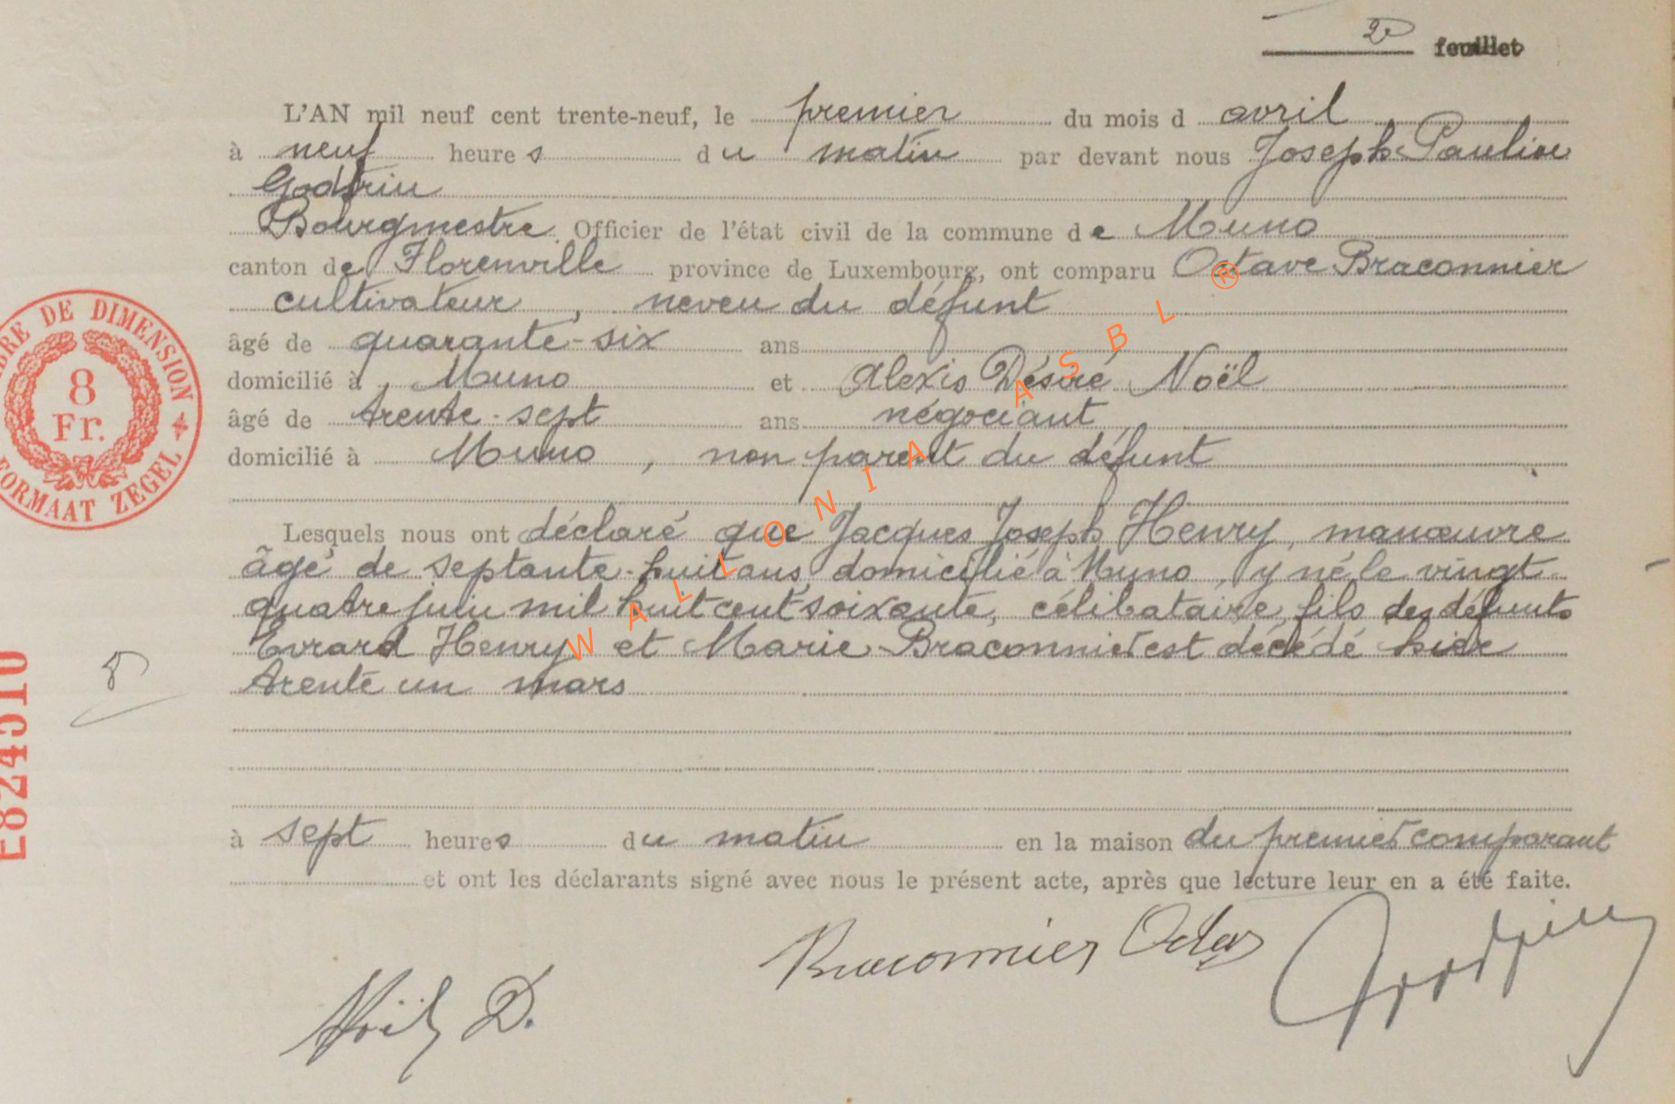 2e feuillet
L'AN mil neuf cent trente-neuf, le premier du mois d avril
à neuf heures du matin par devant nous Joseph Paulin
Godfrin
Bourgmestre Officier de l'état civil de la commune de Muno
canton de Florenville province de Luxembourg, ont comparu Octave Braconnier
cultivateur, neveu du défunt
âgé de quarante-six ans
domicilié à, Muno et Alexis Désiré Noël
âgé de trente-sept ans négociant
domicilié à Muno, non parent du défunt
Lesquels nous ont déclaré que Jacques Joseph Henry, manœuvre
âgé de septante-huit ans, domicilié à Muno, y né le vingt
quatre juin mil huit cent soixante, célibataire, fils des défunts
Evrard Henry et Marie Braconnier est décédé hier
trente un mars
8
à sept heures du matin en la maison du premier comparant
et ont les déclarants signé avec nous le présent acte, après que lecture leur en a été faite.
Braconnier Octav
Godfrin
Noël D.
TIMBRE DE DIMENSION
8
Fr.
FORMAAT ZEGEL
E824510
WALLONIA ASBL ®